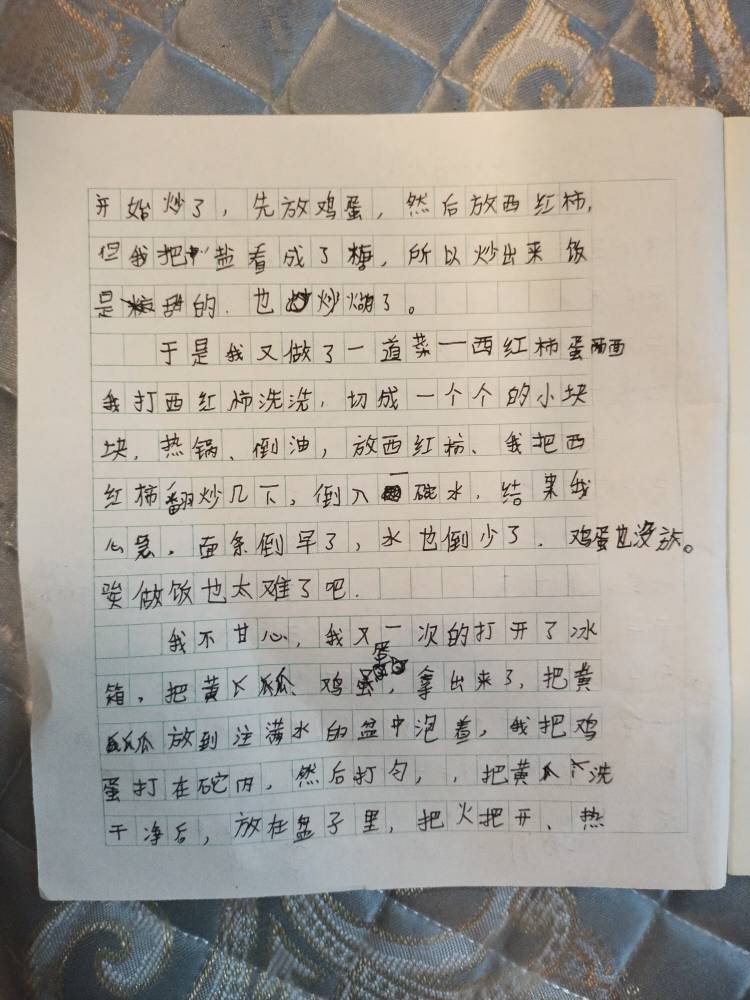 开始炒了，先放鸡蛋，然后放西红柿，
但我把盐看成了糖，所以炒出来饭
是甜的．也炒煳了。
于是我又做了一道菜一西红柿蛋面
我打西红柿洗洗，切成一个个的小块
块，热锅、倒油，放西红柿、我把西
红柿翻炒几下，倒入一碗水，结果我
心急，面条倒早了，水也倒少了．鸡蛋也没放。
唉做饭也太难了吧．
我不甘心，我又一次的打开了冰
箱，把黄瓜、鸡蛋，拿出来了，把黄
瓜放到注满水的盆中泡着，我把鸡
蛋打在碗内，然后打匀，，把黄瓜洗
干净后，放在盆子里，把火把开、热